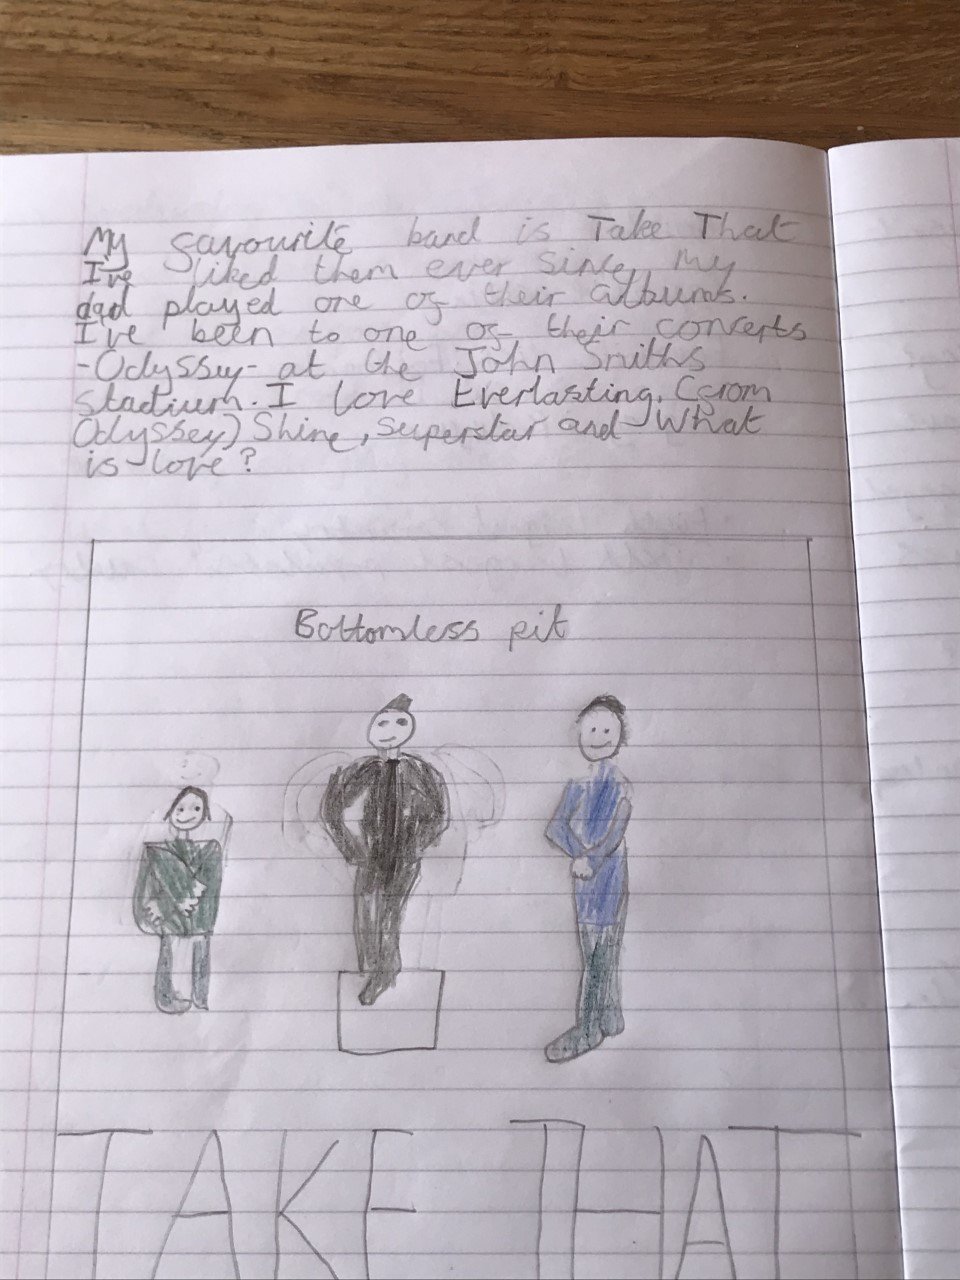 My favourite band is Take That
I've liked them ever since my
dad played one of their albums.
I've been to one of their concerts
-Odyssey- at the John Smiths
stadium. I love Everlasting, (from
Odyssey) Shine, Superstar and What
is love?
Bottomless pit
TAKE THAT